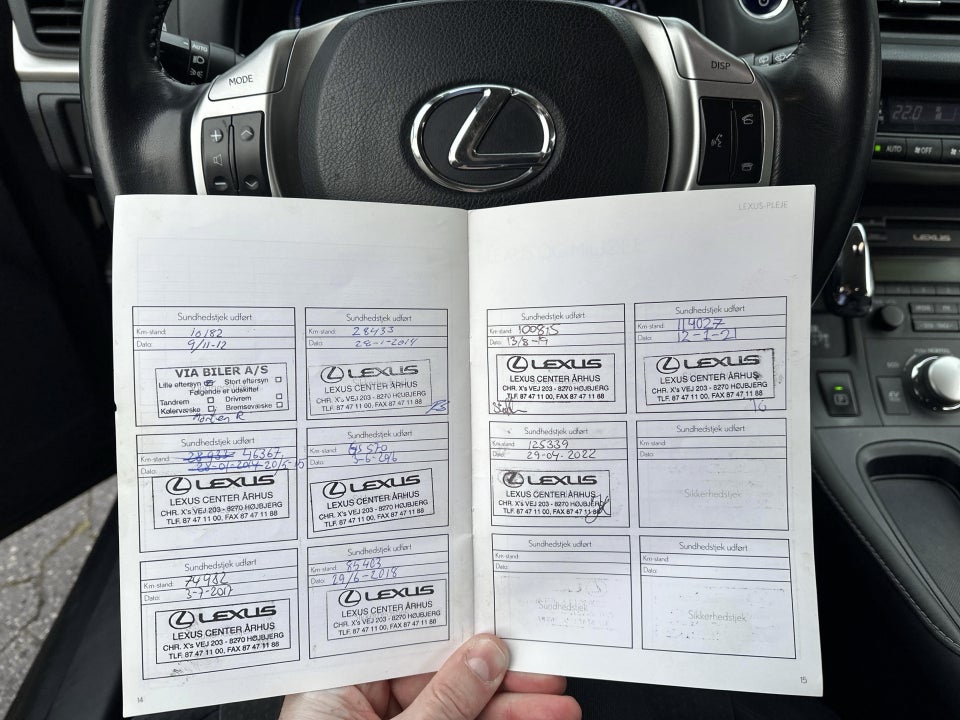 AUTO
MODE
DISP
22.0
AUTO
OFF
LEXUS
LEXUS-PLEJE
Sundhedstjek udført
Km-stand: 10182
Dato: 9/11-12
VIA BILER A/S
Lille eftersyn Stort eftersyn
Følgende er udskiftet
Tændrem Drivrem
Kølervæske Bremsevæske
Sundhedstjek udført
Km-stand: 28433
Dato: 28-1-2014
LEXUS
LEXUS CENTER ÅRHUS
CHR. X's VEJ 203 - 8270 HØJBJERG
TLF. 87 47 11 00, FAX 87 47 11 88
Sundhedstjek udført
Km-stand: 28433 46367
Dato: 28-01-2014
LEXUS
LEXUS CENTER ÅRHUS
CHR. X's VEJ 203 - 8270 HØJBJERG
TLF. 87 47 11 00, FAX 87 47 11 88
Sundhedstjek udført
Km-stand:
Dato:
LEXUS
LEXUS CENTER ÅRHUS
CHR. X's VEJ 203 - 8270 HØJBJERG
TLF. 87 47 11 00, FAX 87 47 11 88
Sundhedstjek udført
Km-stand: 74982
Dato: 3-7-2017
LEXUS
LEXUS CENTER ÅRHUS
CHR. X's VEJ 203 - 8270 HØJBJERG
TLF. 87 47 11 00, FAX 87 47 11 88
Sundhedstjek udført
Km-stand: 85403
Dato: 29/6-2018
LEXUS
LEXUS CENTER ÅRHUS
CHR. X's VEJ 203 - 8270 HØJBJERG
TLF. 87 47 11 00, FAX 87 47 11 88
14
Sundhedstjek udført
Km-stand: 100815
Dato: 13/8-19
LEXUS
LEXUS CENTER ÅRHUS
CHR. X's VEJ 203 - 8270 HØJBJERG
TLF. 87 47 11 00, FAX 87 47 11 88
Sundhedstjek udført
Km-stand: 114027
Dato: 12-1-21
LEXUS
LEXUS CENTER ÅRHUS
CHR. X's VEJ 203 - 8270 HØJBJERG
TLF. 87 47 11 00, FAX 87 47 11 88
Sundhedstjek udført
Km-stand: 125339
Dato: 29-04-2022
LEXUS
LEXUS CENTER ÅRHUS
CHR. X's VEJ 203 - 8270 HØJBJERG
TLF. 87 47 11 00, FAX 87 47 11 88
Sundhedstjek udført
Km-stand:
Dato:
Sikkerhedstjek
Sundhedstjek udført
Km-stand:
Dato:
Sundhedstjek
Sundhedstjek udført
Km-stand:
Dato:
Sikkerhedstjek
15